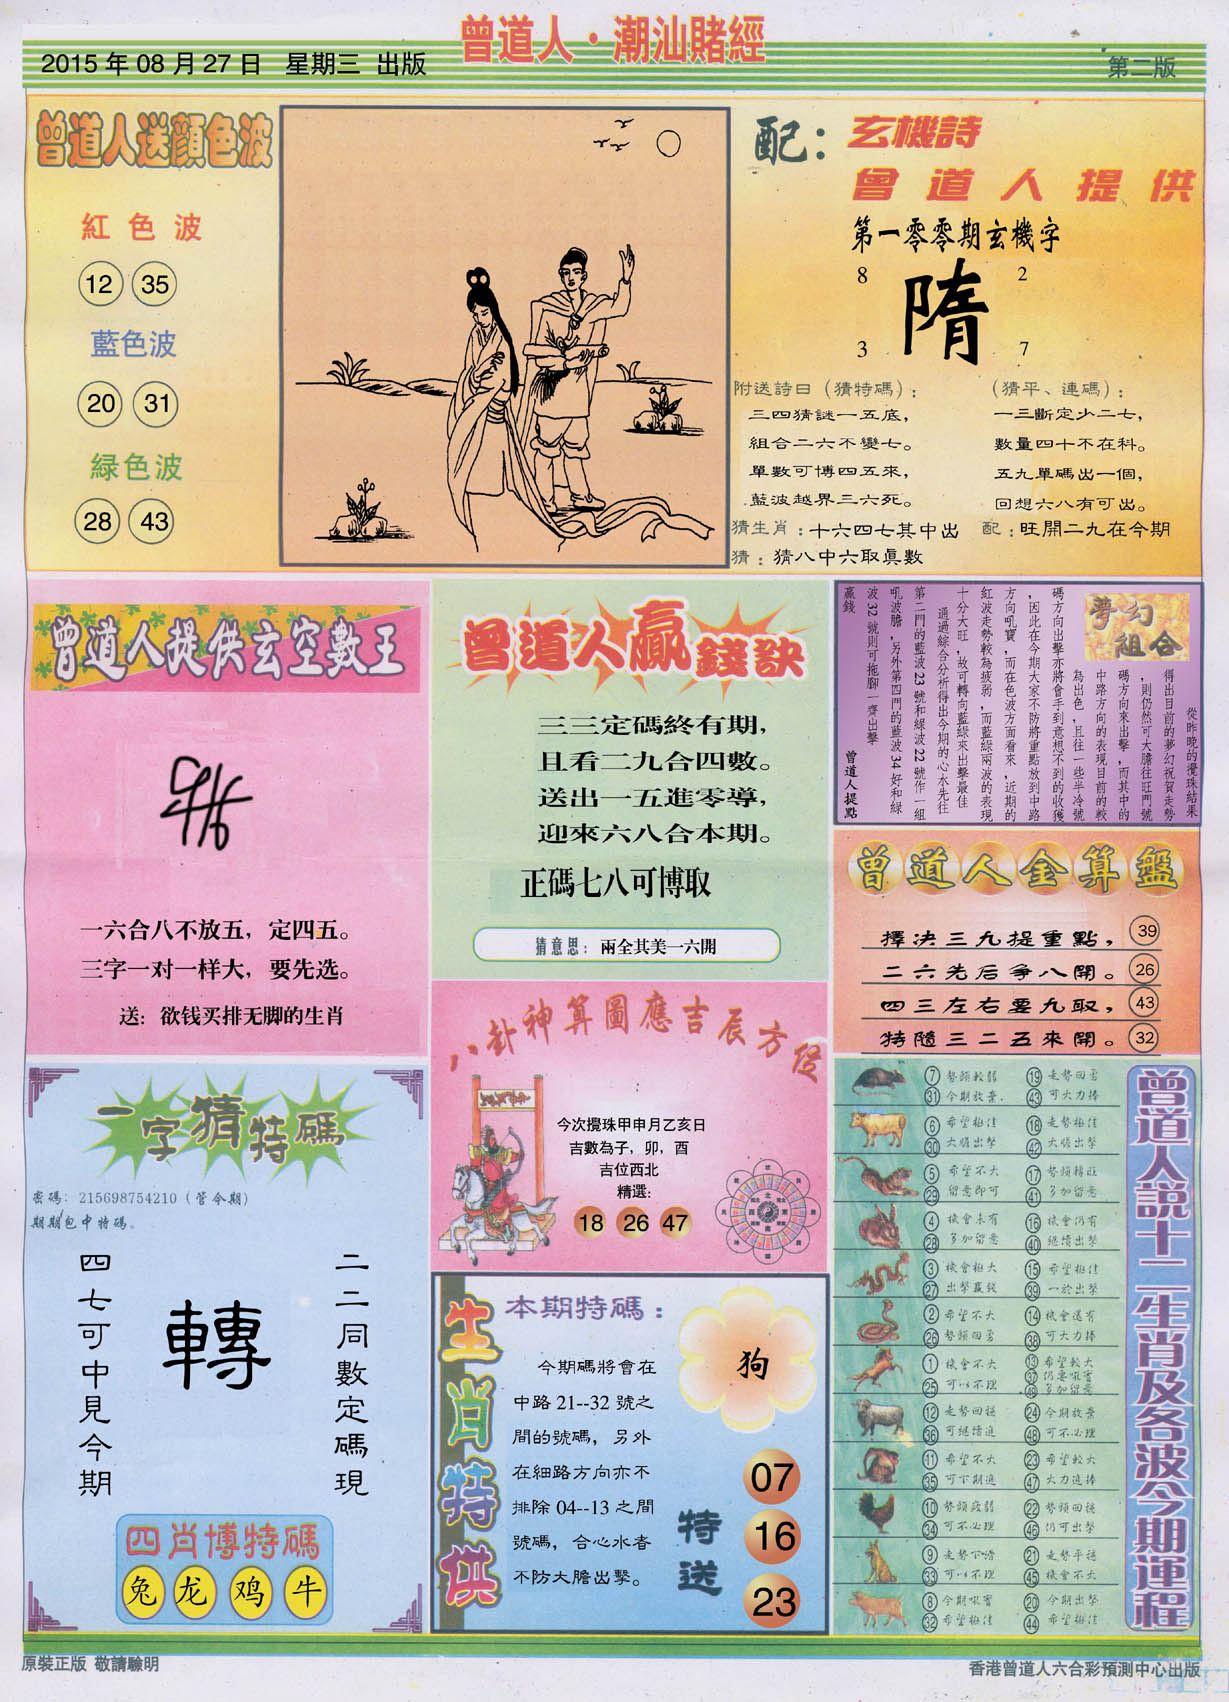 曾道人·潮汕賭經
2015 年 08 月 27 日 星期三 出版
第二版
曾道人送顏色波
紅色波
12 35
藍色波
20 31
緑色波
28 43
配：
玄機詩
曾道人提供
第一零零期玄機字
8 2
隋
3 7
附送詩曰（猜特碼）：
三四猜謎一五底，
組合二六不變七。
單數可博四五來，
藍波越界三六死。
（猜平、連碼）：
一三斷定少二七，
數量四十不在科。
五九單碼出一個，
回想六八有可出。
猜生肖：十六四七其中出
配：旺開二九在今期
猜：猜八中六取眞數
曾道人提供玄空數王
一六合八不放五，定四五。
三字一对一样大，要先选。
送：欲钱买排无脚的生肖
曾道人贏錢訣
三三定碼終有期，
且看二九合四數。
送出一五進零導，
迎來六八合本期。
正碼七八可博取
猜意思：兩全其美一六開
夢幻組合
從昨晚的攪珠結果
得出目前的夢幻祝賀走勢
，則仍然可大膽往旺門號
碼方向來出擊，而其中的
中路方向的表現目前的較
為出色，且往一些半冷號
碼方向出擊亦將會手到意想不到的收獲
，因此在今期大家不防將重點放到中路
方向吼寶，而在色波方面看來，近期的
紅波走勢較為疲弱，而藍綠兩波的表現
十分大旺，故可轉向藍綠來出擊最佳
通過綜合分析得出今期的心水先往
第二門的藍波 23 號和綠波 22 號作一組
吼波膽，另外第四門的藍波 34 好和綠
波 32 號則可拖腳一齊出擊
贏錢
曾道人提點
曾道人金算盤
擇決三九提重點， 39
二六先后爭八開。 26
四三左右要九取， 43
特隨三二五來開。 32
八卦神算圖應吉辰方位
今次攪珠甲申月乙亥日
吉數為子，卯，酉
吉位西北
精選：
18 26 47
一字猜特碼
密碼：215698754210（管今期）
期期包中特碼。
二二同數定碼現
轉
四七可中見今期
四肖博特碼
兔 龙 鸡 牛
生肖特供
本期特碼：
今期碼將會在
中路 21--32 號之
間的號碼，另外
在細路方向亦不
排除 04--13 之間
號碼，合心水者
不防大膽出擊。
狗
特送
07
16
23
曾道人說十二生肖及各波今期運程
7 勢頭較弱 19 走勢回勇
31 今期放棄 43 可大力捧
6 希望極佳 18 走勢極佳
30 大膽出擊 42 大膽出擊
5 希望不大 17 勢頭轉旺
29 留意即可 41 多加留意
4 機會未有 16 機會仍有
28 多加留意 40 繼續出擊
3 機會極大 15 希望極佳
27 出擊贏錢 39 一於出擊
2 希望不大 14 機會還有
26 勢頭回勇 38 可大力捧
1 機會不大 13 希望較大
25 可以不理 37 仍要吼實
49 多加留意
12 走勢回穩 24 今期放棄
36 可繼續追 48 可不必理
11 希望不大 23 希望較大
35 可下期追 47 大力追捧
10 勢頭疲弱 22 勢頭回穩
34 可不必理 46 仍可出擊
9 走勢下滑 21 走勢平穩
33 可以不理 45 機會不大
8 今期吼實 20 今期出擊
32 希望極佳 44 希望極佳
原裝正版 敬請驗明
香港曾道人六合彩預測中心出版